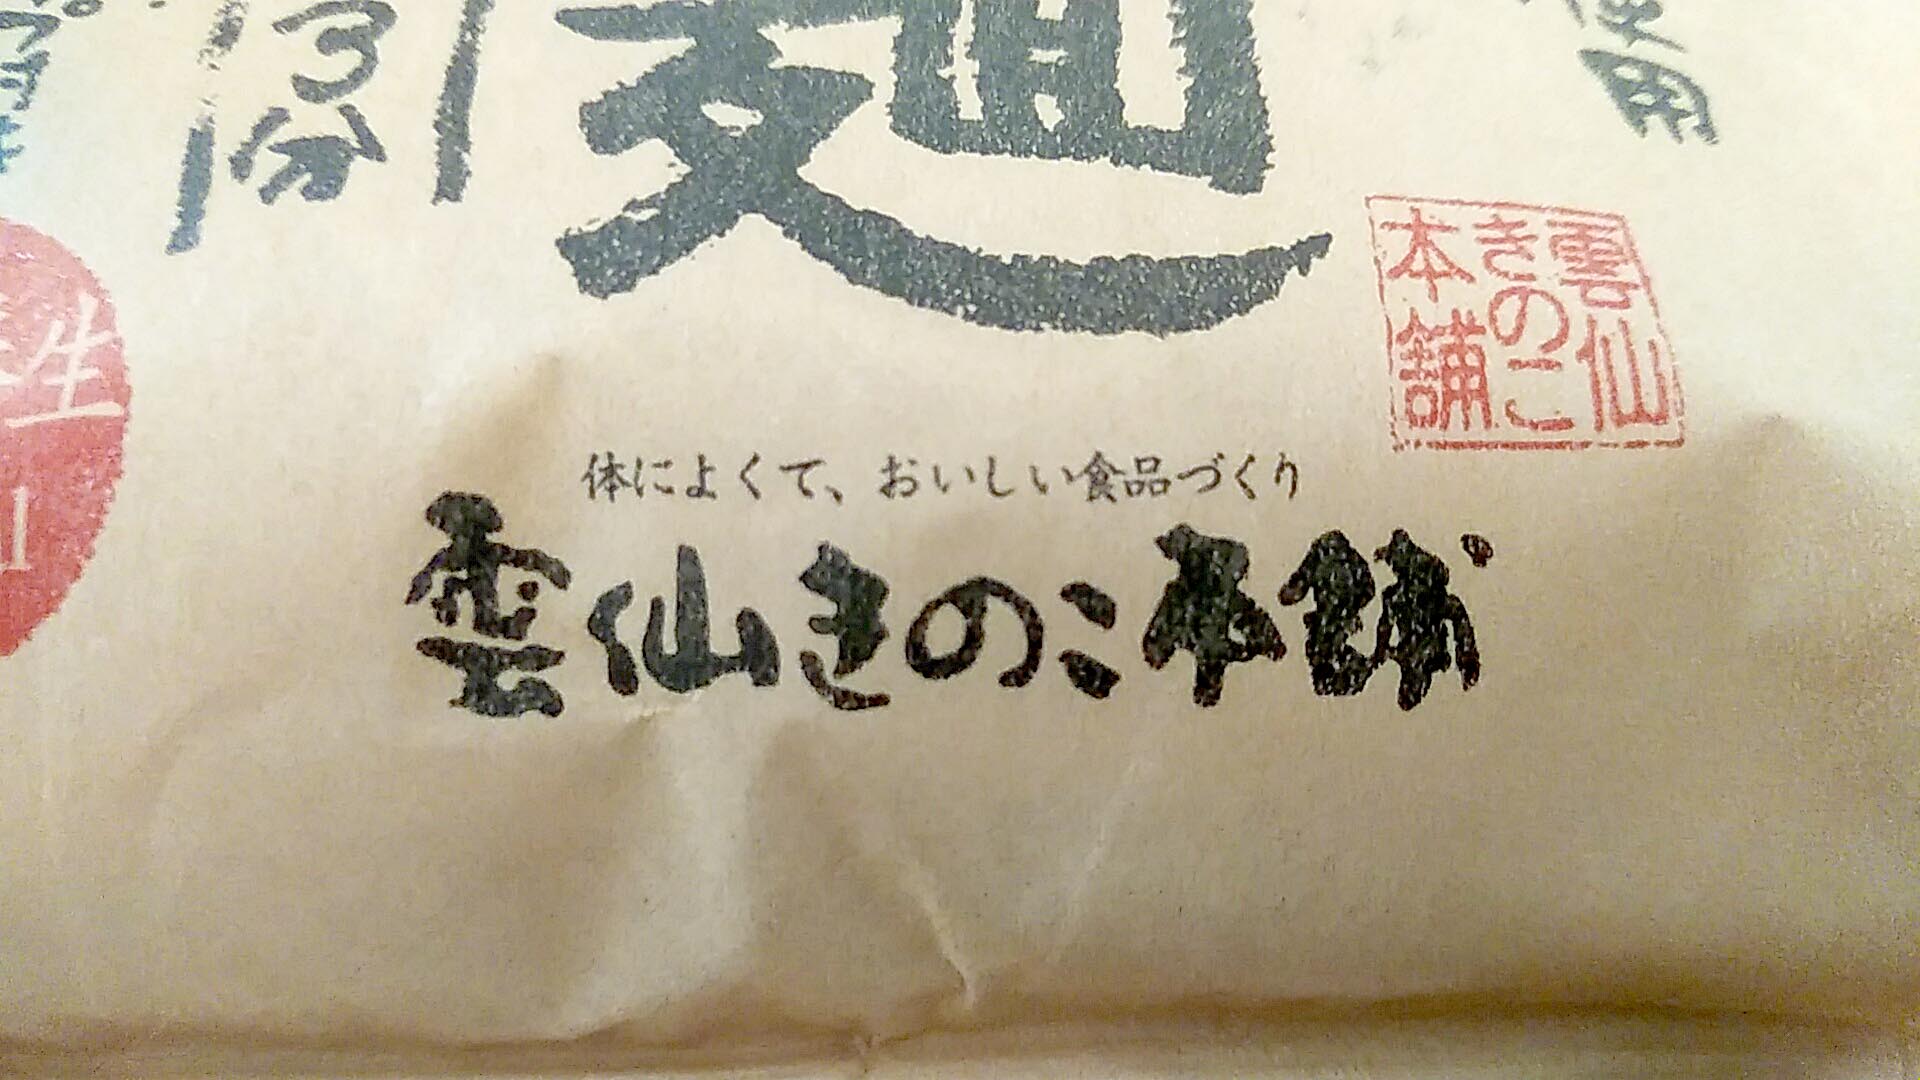 使用
麺
3分
生
1
雲仙
きのこ
本舗
体によくて、おいしい食品づくり
雲仙きのこ本舗